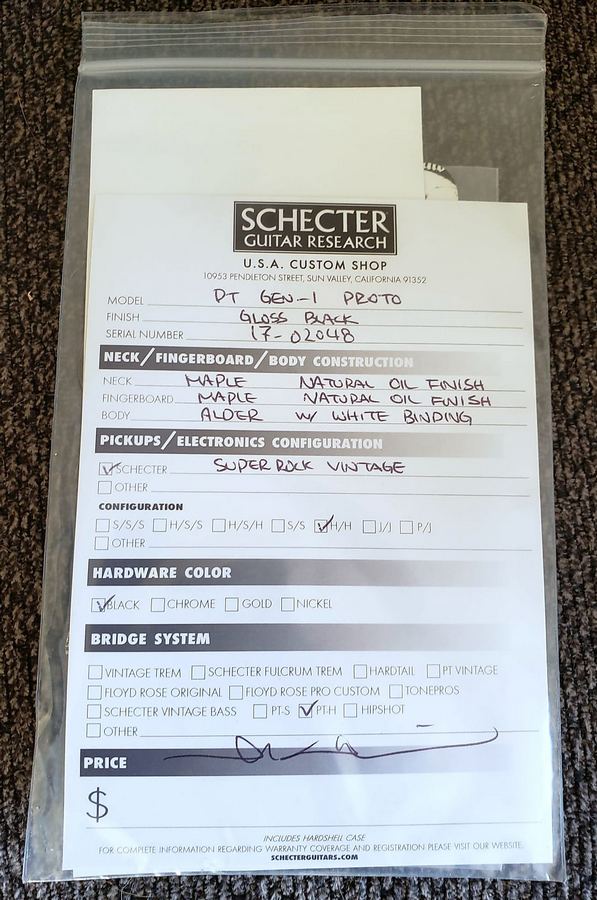 SCHECTER
GUITAR RESEARCH
U.S.A. CUSTOM SHOP
10953 PENDLETON STREET, SUN VALLEY, CALIFORNIA 91352
MODEL PT GEN-1 PROTO
FINISH GLOSS BLACK
SERIAL NUMBER 17-02048
NECK/FINGERBOARD/BODY CONSTRUCTION
NECK MAPLE NATURAL OIL FINISH
FINGERBOARD MAPLE NATURAL OIL FINISH
BODY ALDER W/ WHITE BINDING
PICKUPS/ELECTRONICS CONFIGURATION
SCHECTER SUPER ROCK VINTAGE
OTHER
CONFIGURATION
S/S/S H/S/S H/S/H S/S H/H J/J P/J
OTHER
HARDWARE COLOR
BLACK CHROME GOLD NICKEL
BRIDGE SYSTEM
VINTAGE TREM SCHECTER FULCRUM TREM HARDTAIL PT VINTAGE
FLOYD ROSE ORIGINAL FLOYD ROSE PRO CUSTOM TONEPROS
SCHECTER VINTAGE BASS PT-S PT-H HIPSHOT
OTHER
PRICE
$
INCLUDES HARDSHELL CASE
FOR COMPLETE INFORMATION REGARDING WARRANTY COVERAGE AND REGISTRATION PLEASE VISIT OUR WEBSITE.
SCHECTERGUITARS.COM